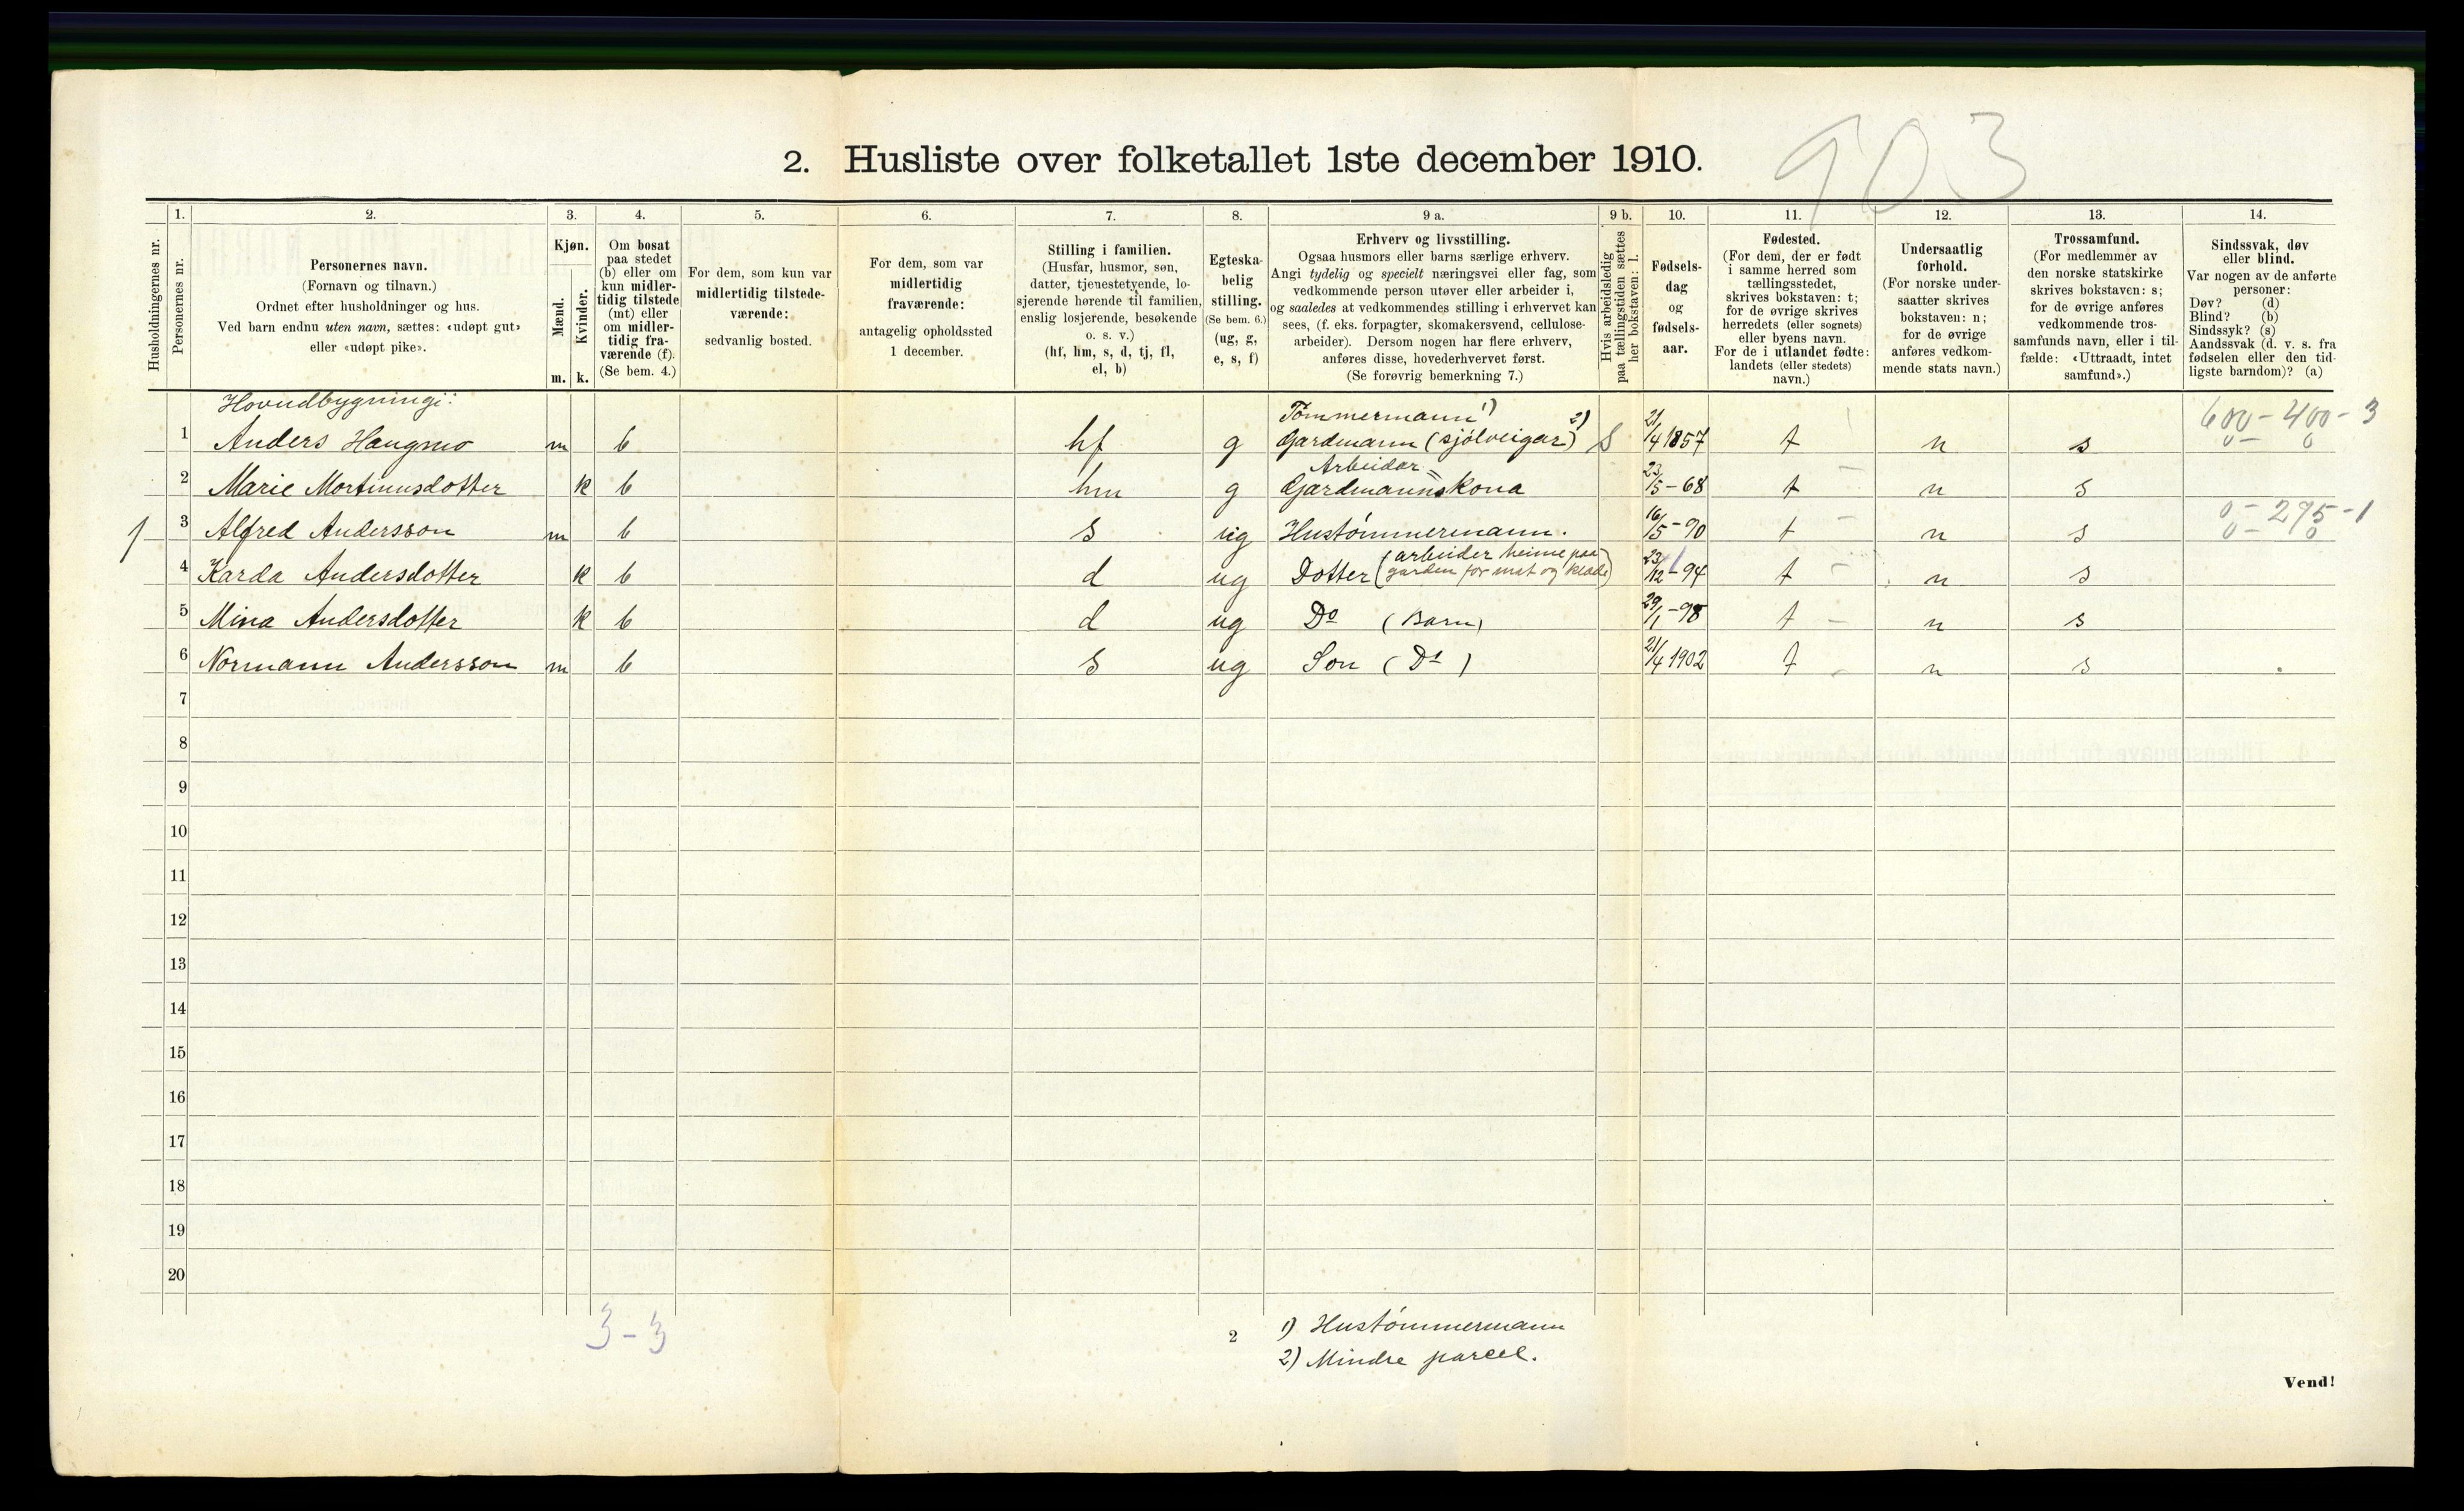 903
2. Husliste over folketallet 1ste december 1910.
Husholdningernes nr.
1.
Personernes nr.
2.
Personernes navn.
(Fornavn og tilnavn.)
Ordnet efter husholdninger og hus.
Ved barn endnu uten navn, sættes: «udøpt gut»
eller «udøpt pike».
3.
Kjøn.
Mænd.
Kvinder.
m. k.
4.
Om bosat
paa stedet
(b) eller om
kun midler-
tidig tilstede
(mt) eller
om midler-
tidig fra-
værende (f).
(Se bem. 4.)
5.
For dem, som kun var
midlertidig tilstede-
værende:
sedvanlig bosted.
6.
For dem, som var
midlertidig
fraværende:
antagelig opholdssted
1 december.
7.
Stilling i familien.
(Husfar, husmor, søn,
datter, tjenestetyende, lo-
sjerende hørende til familien,
enslig losjerende, besøkende
o. s. v.)
(hf, hm, s, d, tj, fl,
el, b)
8.
Egteska-
belig
stilling.
(Se bem. 6.)
(ug, g,
e, s, f)
9 a.
Erhverv og livsstilling.
Ogsaa husmors eller barns særlige erhverv.
Angi tydelig og specielt næringsvei eller fag, som
vedkommende person utøver eller arbeider i,
og saaledes at vedkommendes stilling i erhvervet kan
sees, (f. eks. forpagter, skomakersvend, cellulose-
arbeider). Dersom nogen har flere erhverv,
anføres disse, hovederhvervet først.
(Se forøvrig bemerkning 7.)
9 b.
Hvis arbeidsledig
paa tællingstiden sættes
her bokstaven: l.
10.
Fødsels-
dag
og
fødsels-
aar.
11.
Fødested.
(For dem, der er født
i samme herred som
tællingsstedet,
skrives bokstaven: t;
for de øvrige skrives
herredets (eller sognets)
eller byens navn.
For de i utlandet fødte:
landets (eller stedets)
navn.)
12.
Undersaatlig
forhold.
(For norske under-
saatter skrives
bokstaven: n;
for de øvrige
anføres vedkom-
mende stats navn.)
13.
Trossamfund.
(For medlemmer av
den norske statskirke
skrives bokstaven: s;
for de øvrige anføres
vedkommende tros-
samfunds navn, eller i til-
fælde: «Uttraadt, intet
samfund».)
14.
Sindssvak, døv
eller blind.
Var nogen av de anførte
personer:
Døv? (d)
Blind? (b)
Sindssyk? (s)
Aandssvak (d. v. s. fra
fødselen eller den tid-
ligste barndom)? (a)
Hovudbygningi:
Tømmermann 1) 2) 600 - 400 - 3
1 Anders Haugmo m b hf g Gardmann (sjølveigar) 21/4 1857 t n s 0 - 0
Arbeidar
2 Marie Mortinusdotter k b hm g Gardmannskona 23/5 - 68 t n s
0 - 295 - 1
1 3 Alfred Andersson m b s ug Hustømmermann. 16/5 - 90 t n s 0 - 0
(arbeider heime paa
4 Karda Andersdotter k b d ug Dotter garden for mat og klæde) 23/12 - 94 t n s
5 Mina Andersdotter k b d ug Do (Barn) 29/1 - 98 t n s
6 Normann Andersson m b s ug Son (Do) 21/4 1902 t n s
7
8
9
10
11
12
13
14
15
16
17
18
19
20
3 - 3
2
1) Hustømmermann
2) Mindre parcel.
Vend!